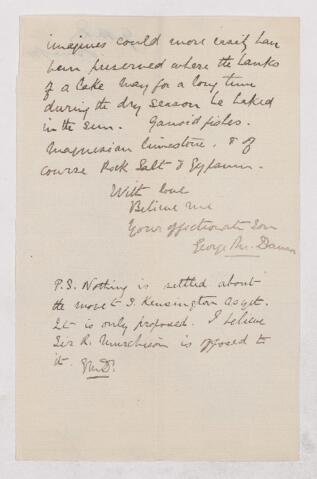 imagines could more easily have
been preserved where the banks
of a lake may for a long time
during the dry season be baked
in the sun. Ganoid fishes.
Magnesian limestone, & of
course Rock Salt & Gypsum.
With love
Believe me
Your affectionate Son
George M. Dawson
P.S. Nothing is settled about
the move to S. Kensington as yet.
It is only proposed. I believe
Sir R. Murchison is opposed to
it. GMD.